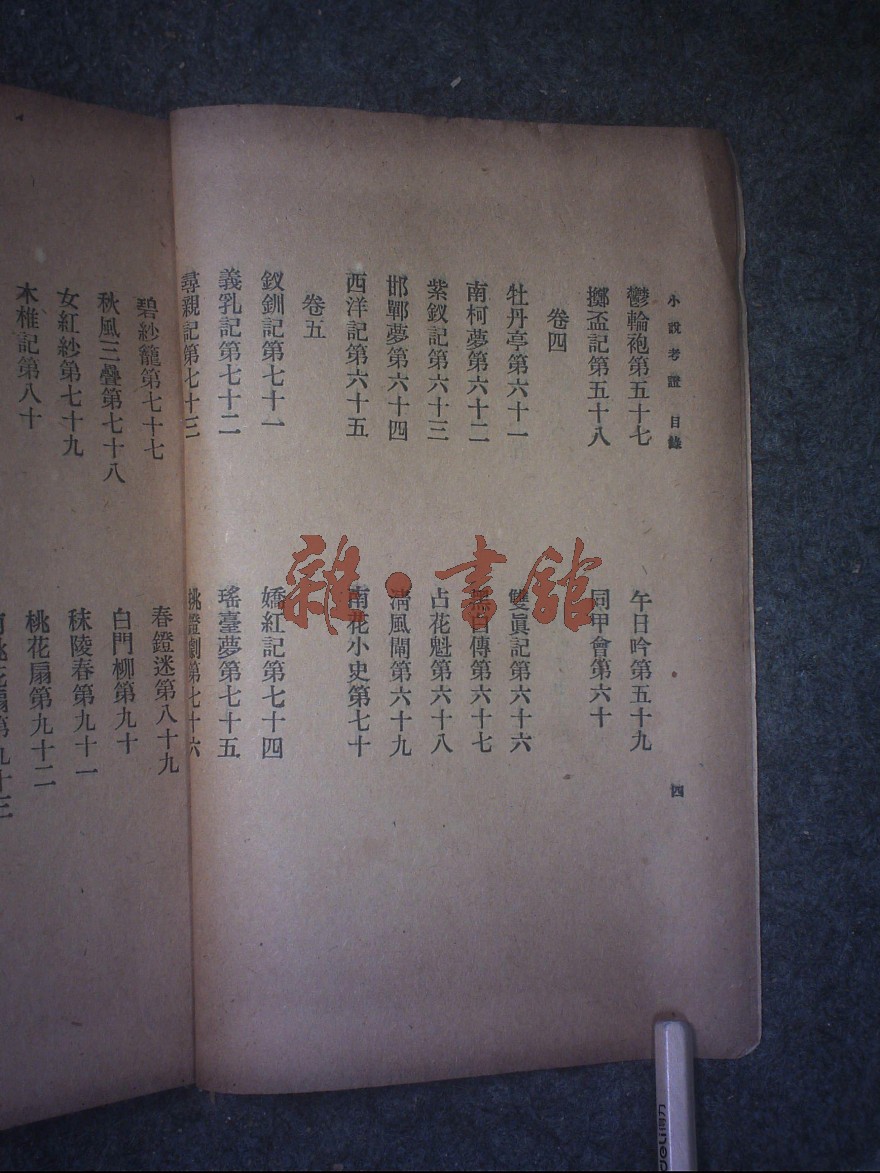 小說考證 目錄
四
鬱輪袍第五十七
擲盃記第五十八
午日吟第五十九
同甲會第六十
卷四
牡丹亭第六十一
南柯夢第六十二
紫釵記第六十三
邯鄲夢第六十四
西洋記第六十五
雙眞記第六十六
黑白傳第六十七
占花魁第六十八
清風閘第六十九
南花小史第七十
卷五
釵釧記第七十一
義乳記第七十二
尋親記第七十三
嬌紅記第七十四
瑤臺夢第七十五
挑鐙劇第七十六
碧紗籠第七十七
秋風三疊第七十八
女紅紗第七十九
木椎記第八十
春鐙迷第八十九
白門柳第九十
秣陵春第九十一
桃花扇第九十二
桃花扇第九十三
雜·書館
deli